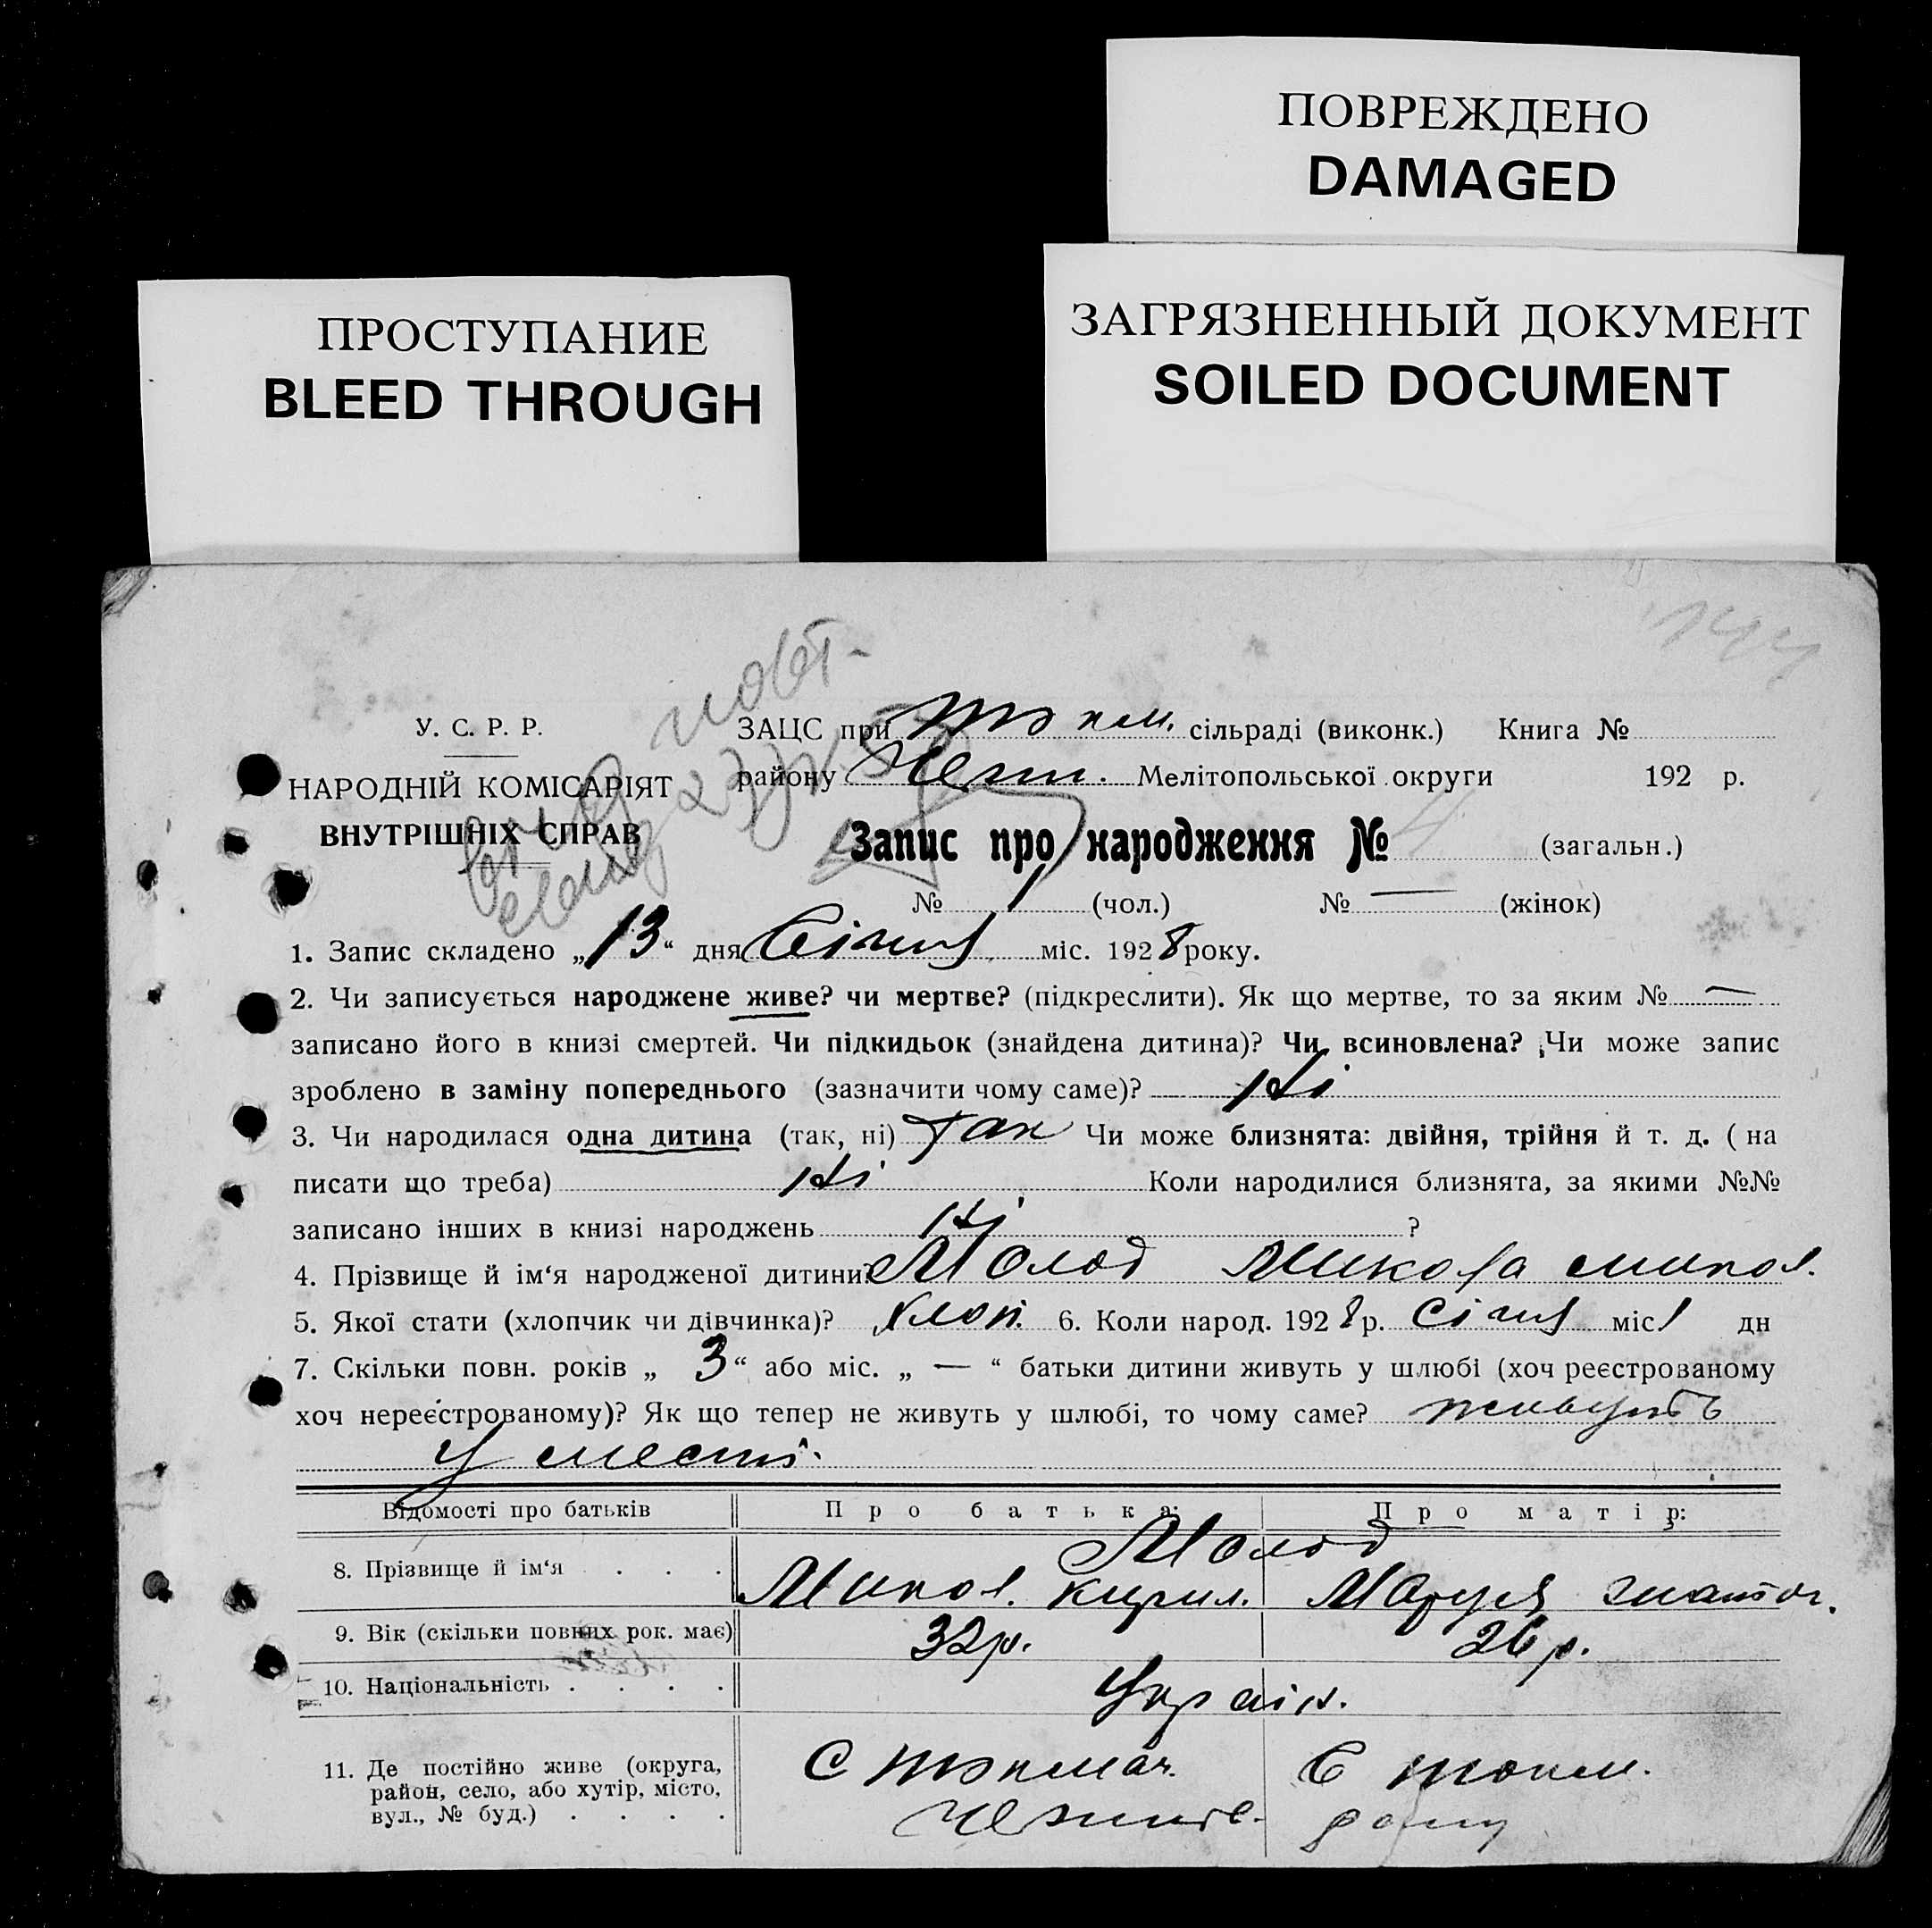 ПОВРЕЖДЕНО
DAMAGED
ПРОСТУПАНИЕ
BLEED THROUGH
ЗАГРЯЗНЕННЫЙ ДОКУМЕНТ
SOILED DOCUMENT
У. С. Р. Р.
НАРОДНІЙ КОМІСАРІЯТ
ВНУТРІШНІХ СПРАВ
ЗАЦС при сільраді (виконк.) Книга №
району Мелітопольської округи 192 р.
Запис про народження № 4 (загальн.)
№ 1 (чол.) № — (жінок)
1. Запис складено „13“ дня Січня міс. 1928 року.
2. Чи записується народжене живе? чи мертве? (підкреслити). Як що мертве, то за яким № —
записано його в книзі смертей. Чи підкидьок (знайдена дитина)? Чи всиновлена? Чи може запис
зроблено в заміну попереднього (зазначити чому саме)? Ні
3. Чи народилася одна дитина (так, ні) Так Чи може близнята: двійня, трійня й т. д. ( на
писати що треба) Ні Коли народилися близнята, за якими №№
записано інших в книзі народжень Ні ?
4. Прізвище й ім‘я народженої дитини? Молод Микола Микол.
5. Якої стати (хлопчик чи дівчинка)? хлоп. 6. Коли народ. 1928 р. Січня міс 1 дн
7. Скільки повн. років „ 3 “ або міс. „ — “ батьки дитини живуть у шлюбі (хоч реєстрованому
хоч нереєстрованому)? Як що тепер не живуть у шлюбі, то чому саме? живуть
у месті.
Відомості про батьків Про батька: Про матір:
Молод
8. Прізвище й ім‘я . . . Микол. Кирил. Марія
9. Вік (скільки повних рок. має) 32 р. 26 р.
10. Національність . . . . Україн.
11. Де постійно живе (округа,
район, село, або хутір, місто,
вул., № буд.) . . . .
С Токмач. С Токм.